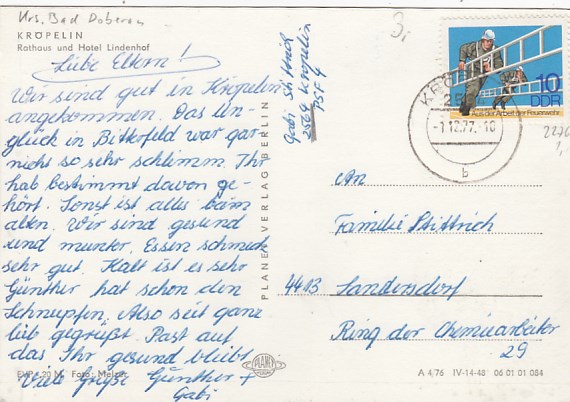 Krs. Bad Doberan
KRÖPELIN
Rathaus und Hotel Lindenhof
Liebe Eltern!
Wir sind gut in Kröpelin
angekommen. Das Un-
glück in Bitterfeld war gar
nicht so sehr schlimm. Ihr
hab bestimmt davon ge-
hört. Sonst ist alles beim
alten. Wir sind gesund
und munter. Essen schmeckt
sehr gut. Kalt ist es sehr
Günther hat schon den
Schnupfen. Also seit ganz
lieb gegrüßt. Past auf
das Ihr gesund bleibt
Viele Grüße Günther +
Gabi
EVP 0,20 M Foto: Melzer
PLANET-VERLAG BERLIN
PLANET
Gabi Stittrich
2564 Kröpelin
PSF 4
3,
10
DDR
Aus der Arbeit der Feuerwehr
-1.12.77.-18
b
An
Familie Stittrich
4413 Sandersdorf
Ring der Chemiearbeiter
29
A 4/76 IV-14-48 06 01 01 084